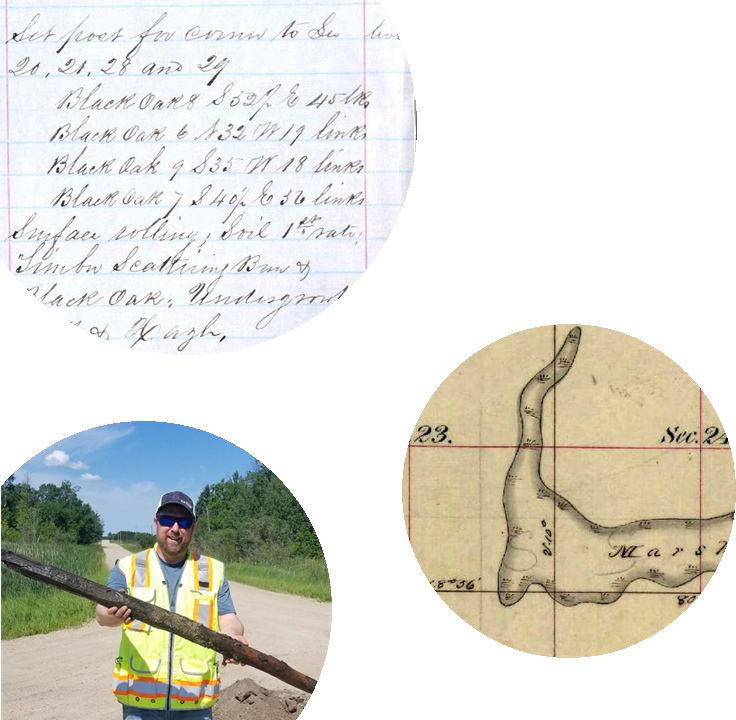 Set post for corner to Se
20, 21, 28 and 29
Black Oak 8 S 52½ E 45 lks
Black Oak 6 N 32 W 19 links
Black Oak 9 S 35 W 18 links
Black Oak 7 S 40½ E 56 links
Surface rolling; Soil 1st rate;
Timber Scattering Burr &
Black Oak; Undergrowt
& Hazle,
23.
Sec. 24
Mars
8°56'
80